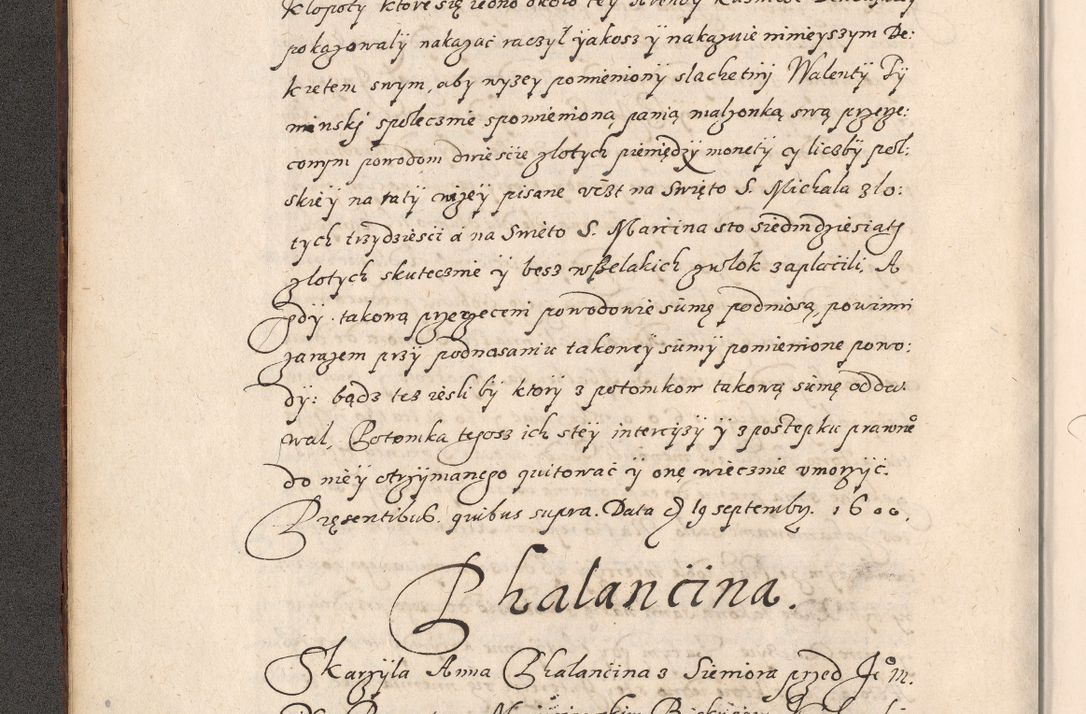 Klopoty ktore się iedno około tey Arendy
pokazowały nakazać raczył yakosz y nakazuie ninieyszym De:
kretem swym, aby wyzey pomieniony slachetny Walenty Ty
minskj społecznie spomienioną panią malzonką swą przerze:
conym powodom dwieście złotych pieniędzy monety cy liczby pol:
skiey na raty nizey pisane vczt na Swięto S. Michala zlo:
tych trzydziesci á na Swieto S. Marćina sto siedmdziesiąty
złotych skutecznie y besz wszelakich zwłok zaplaćili, A
gdy takową przerzeceni powodowie sumę podniosą, powinni
zarazem przy podnosaniu takowey sumy pomienione powo:
dy: bądz tez iesli by ktory z potomkow takową sumę oddawa
wal, Potomka tegosz ich stey intercyzy y z postępku prawne°
do niey otrzymanego quitować y onę wiecznie vmorzyć.
Pręsentibus quibus supra. Data 19 septembr. 1600.
Phalanćina.
Skarzyla Anna Phalanćina z Siemiona przed Je° M.